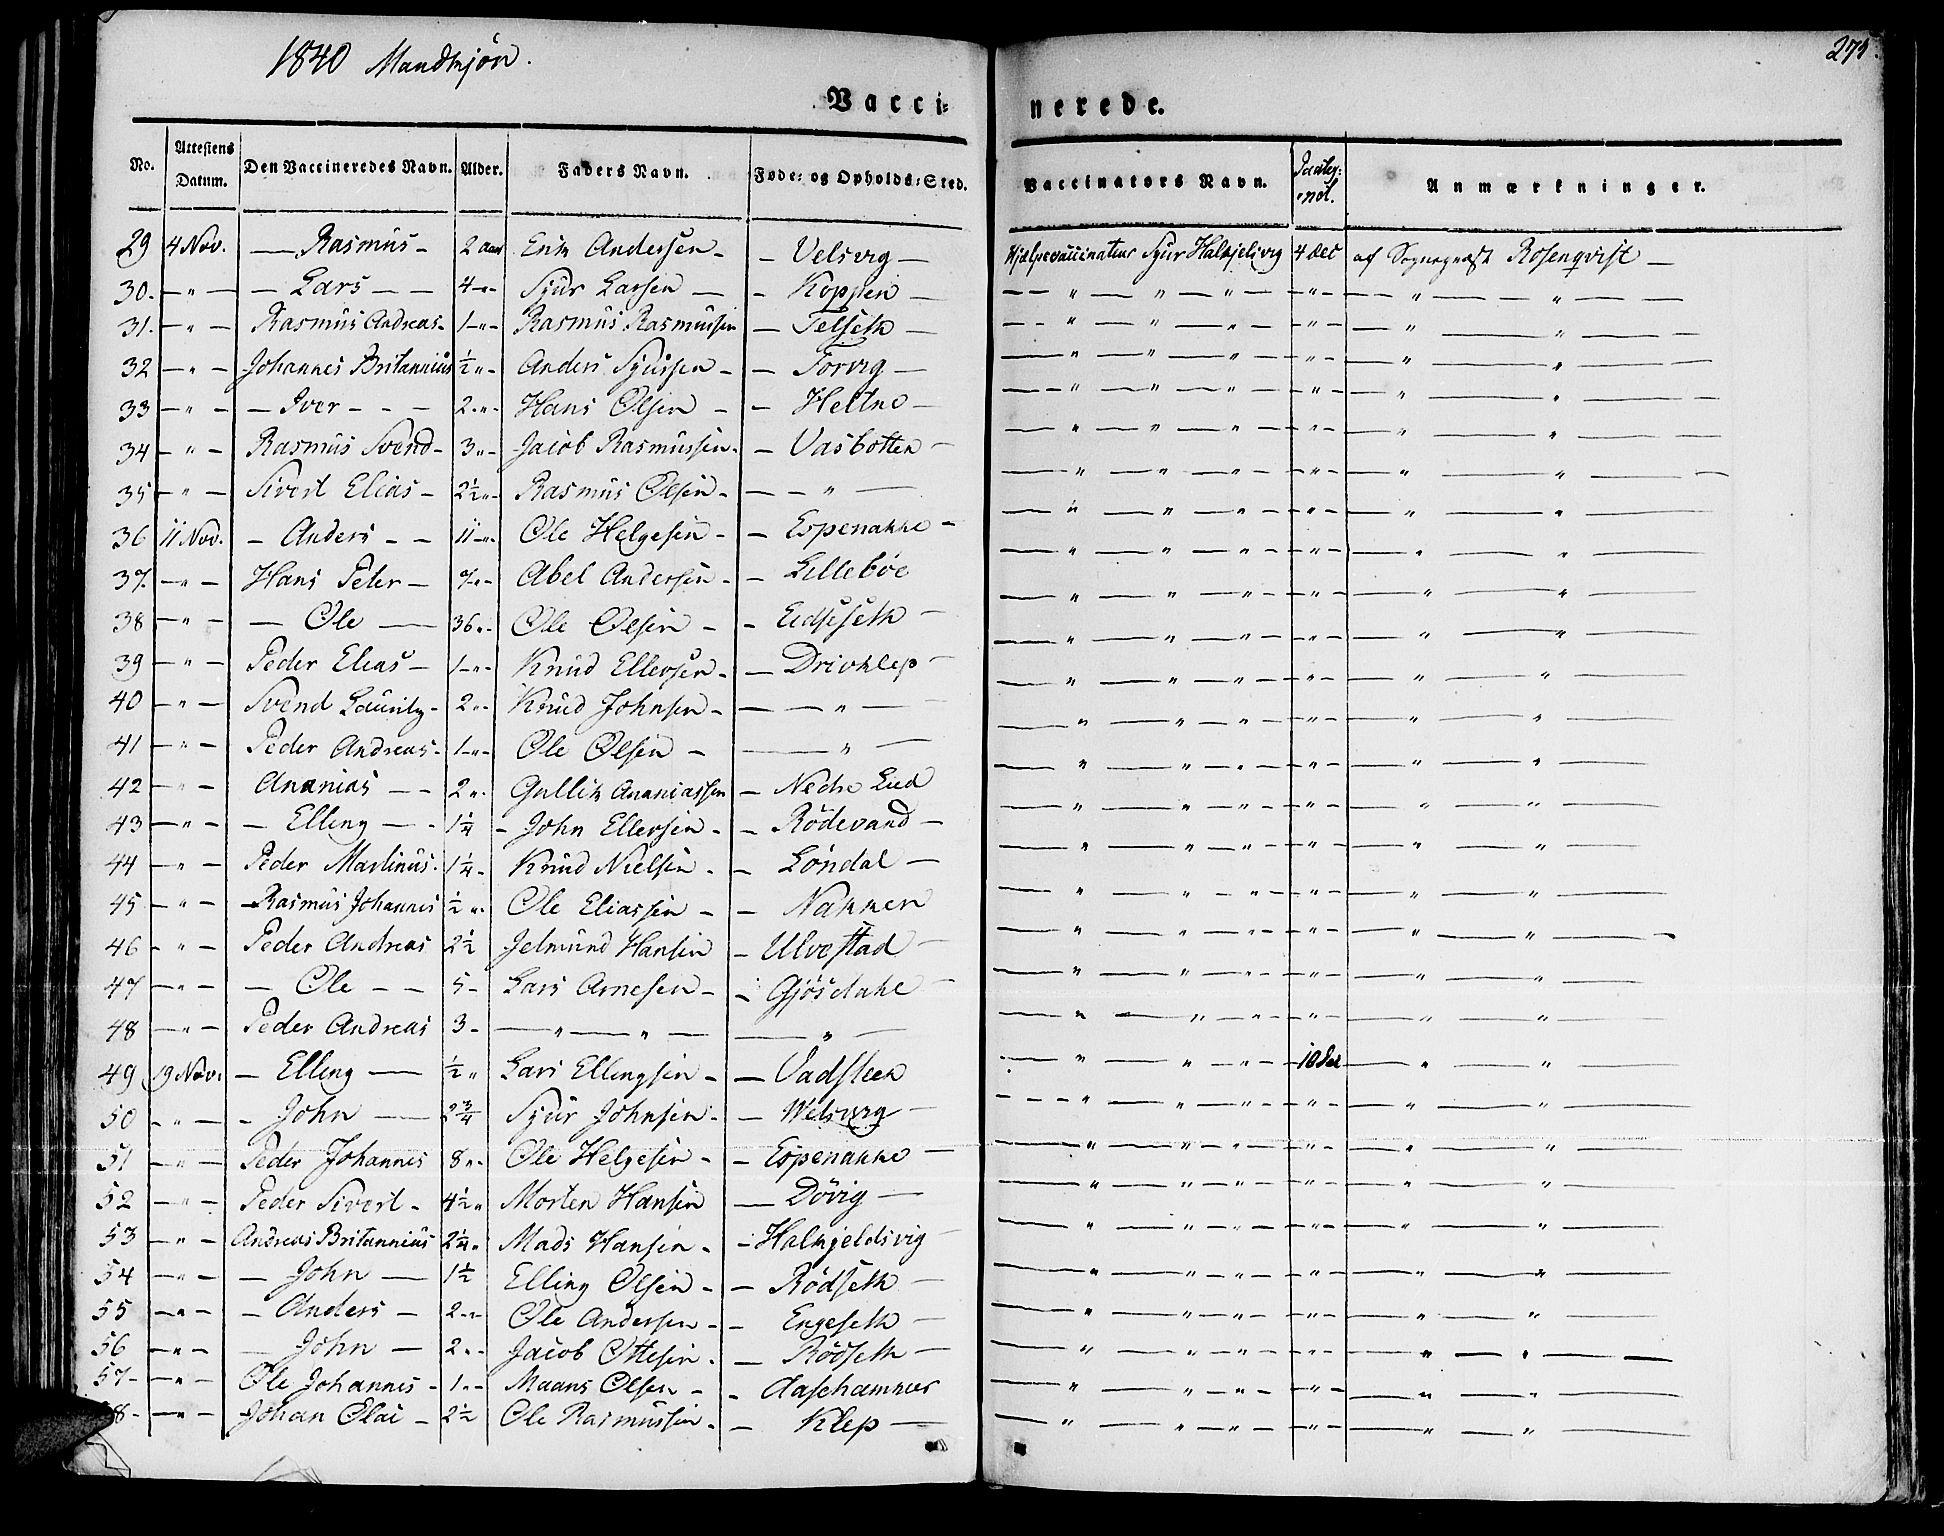 1840 Mandkjön.
273.
Vacci-
nerede.
No. Attestens Datum. Den Vaccineredes Navn. Alder. Faders Navn. Føde- og Opholds-Sted. Vaccinators Navn. Anmærkninger.
29 4 Nov. — Rasmus - 2 Aar Erik Andersen - - Velsvig — Hjelpevaccinateur Sjur Halkjelsvig 4 Dec af Sognepræst Rosenqvist —
30. - " - — Lars — - 4 - " - Sjur Larsen — - Koppen — — " — " — " — - " - — " — " —
31. - " - Rasmus Andreas - 1 - " - Rasmus Rasmussen — Felseth — — " — " — " — - " - — " — " —
32 - " - Johannes Britannius ½ " - Anders Sjursen - — Torvig — — " — " — " — - " - — " — " —
33 - " - — Iver - - - 2 - " - Hans Olsen - — Heltne — — " — " — " — - " - — " — " —
34 - " - Rasmus Svend - 3 " - Jacob Rasmussen - — Vasbotten — — " — " — " — - " - — " — " —
35 - " - Sivert Elias - 2½ " - Rasmus Olsen - — - " — — " — " — " — - " - — " — " —
36 11 Nov. — Anders - - 11 - " - Ole Helgesen - — Espenakke - — " — " — " — - " - — " — " —
37. - " - Hans Peter — 7 " - Abel Andersen - — Lillebøe — " — " — " — - " - — " — " —
38 - " - — Ole — 36 " - Ole Olsen - - Eidseseth — — " — " — " — - " - — " — " —
39 - " - Peder Elias - 1 - " - Knud Ellevsen - — Drivklep — — " — " — " — - " - — " — " —
40 - " - Svend Lauritz - 2 " - Knud Johnsen - — " — — " — " — " — - " - — " — " —
41 - " - Peder Andreas - 1 - " - Ole Olsen - — " — — " — " — " — - " - — " — " —
42 - " - Ananias — - 2 " - Gullik Ananiassen — Nedre Eid — " — " — " — - " - — " — " —
43 - " - — Elling — - 1¼ - John Ellevsen - — Rödevand — — " — " — " — - " - — " — " —
44 - " - Peder Martinus - 1¼ - Knud Nielsen - — Löndal — — " — " — " — - " - — " — " —
45 - " - Rasmus Johannes ½ " - Ole Eliassen - - Nakken — " — " — " — - " - — " — " —
46 - " - Peder Andreas 2½ Jelmund Hansen - Ulvestad — — " — " — " — - " - — " — " —
47 - " - — Ole - - 5 - Lars Arnesen - - Gjösdahl — — " — " — " — - " - — " — " —
48 - " - Peder Andreas 3 - — " — " — — " — — " — " — " — - " - — " — " —
49 19 Nov. — Elling — ½ " Lars Ellingsen - — Vadsteen — " — " — " — 10 Dec — " — " —
50 - " - - John — 2¾ Sjur Johnsen - — Welsvig — — " — " — " — - " - — " — " —
51 - " - Peder Johannes 8 " - Ole Helgesen - - Espenakke — — " — " — " — - " - — " — " —
52 - " - Peder Sivert - 4½ " Morten Hansen — Dövig — — " — " — " — - " - — " — " —
53 - " - Andreas Britannius 2¼ " Mads Hansen - - Halkjeldsvig — — " — " — " — - " - — " — " —
54 - " - — John — 1½ Elling Olsen - - Rödseth — — " — " — " — - " - — " — " —
55 - " - - Anders — 2 - " - Ole Andersen - - Engeseth — — " — " — " — - " - — " — " —
56 - " - — John — 2 " - Jacob Ottesen - — Rödseth — — " — " — " — - " - — " — " —
57 - - " - Ole Johannes - 1 " - Maans Olsen - - Aasehammer — " — " — " — - " - — " — " —
58 - - " - Johan Olai - 2½ Ole Rasmussen - — Klep — — " — " — " — - " - — " — " —